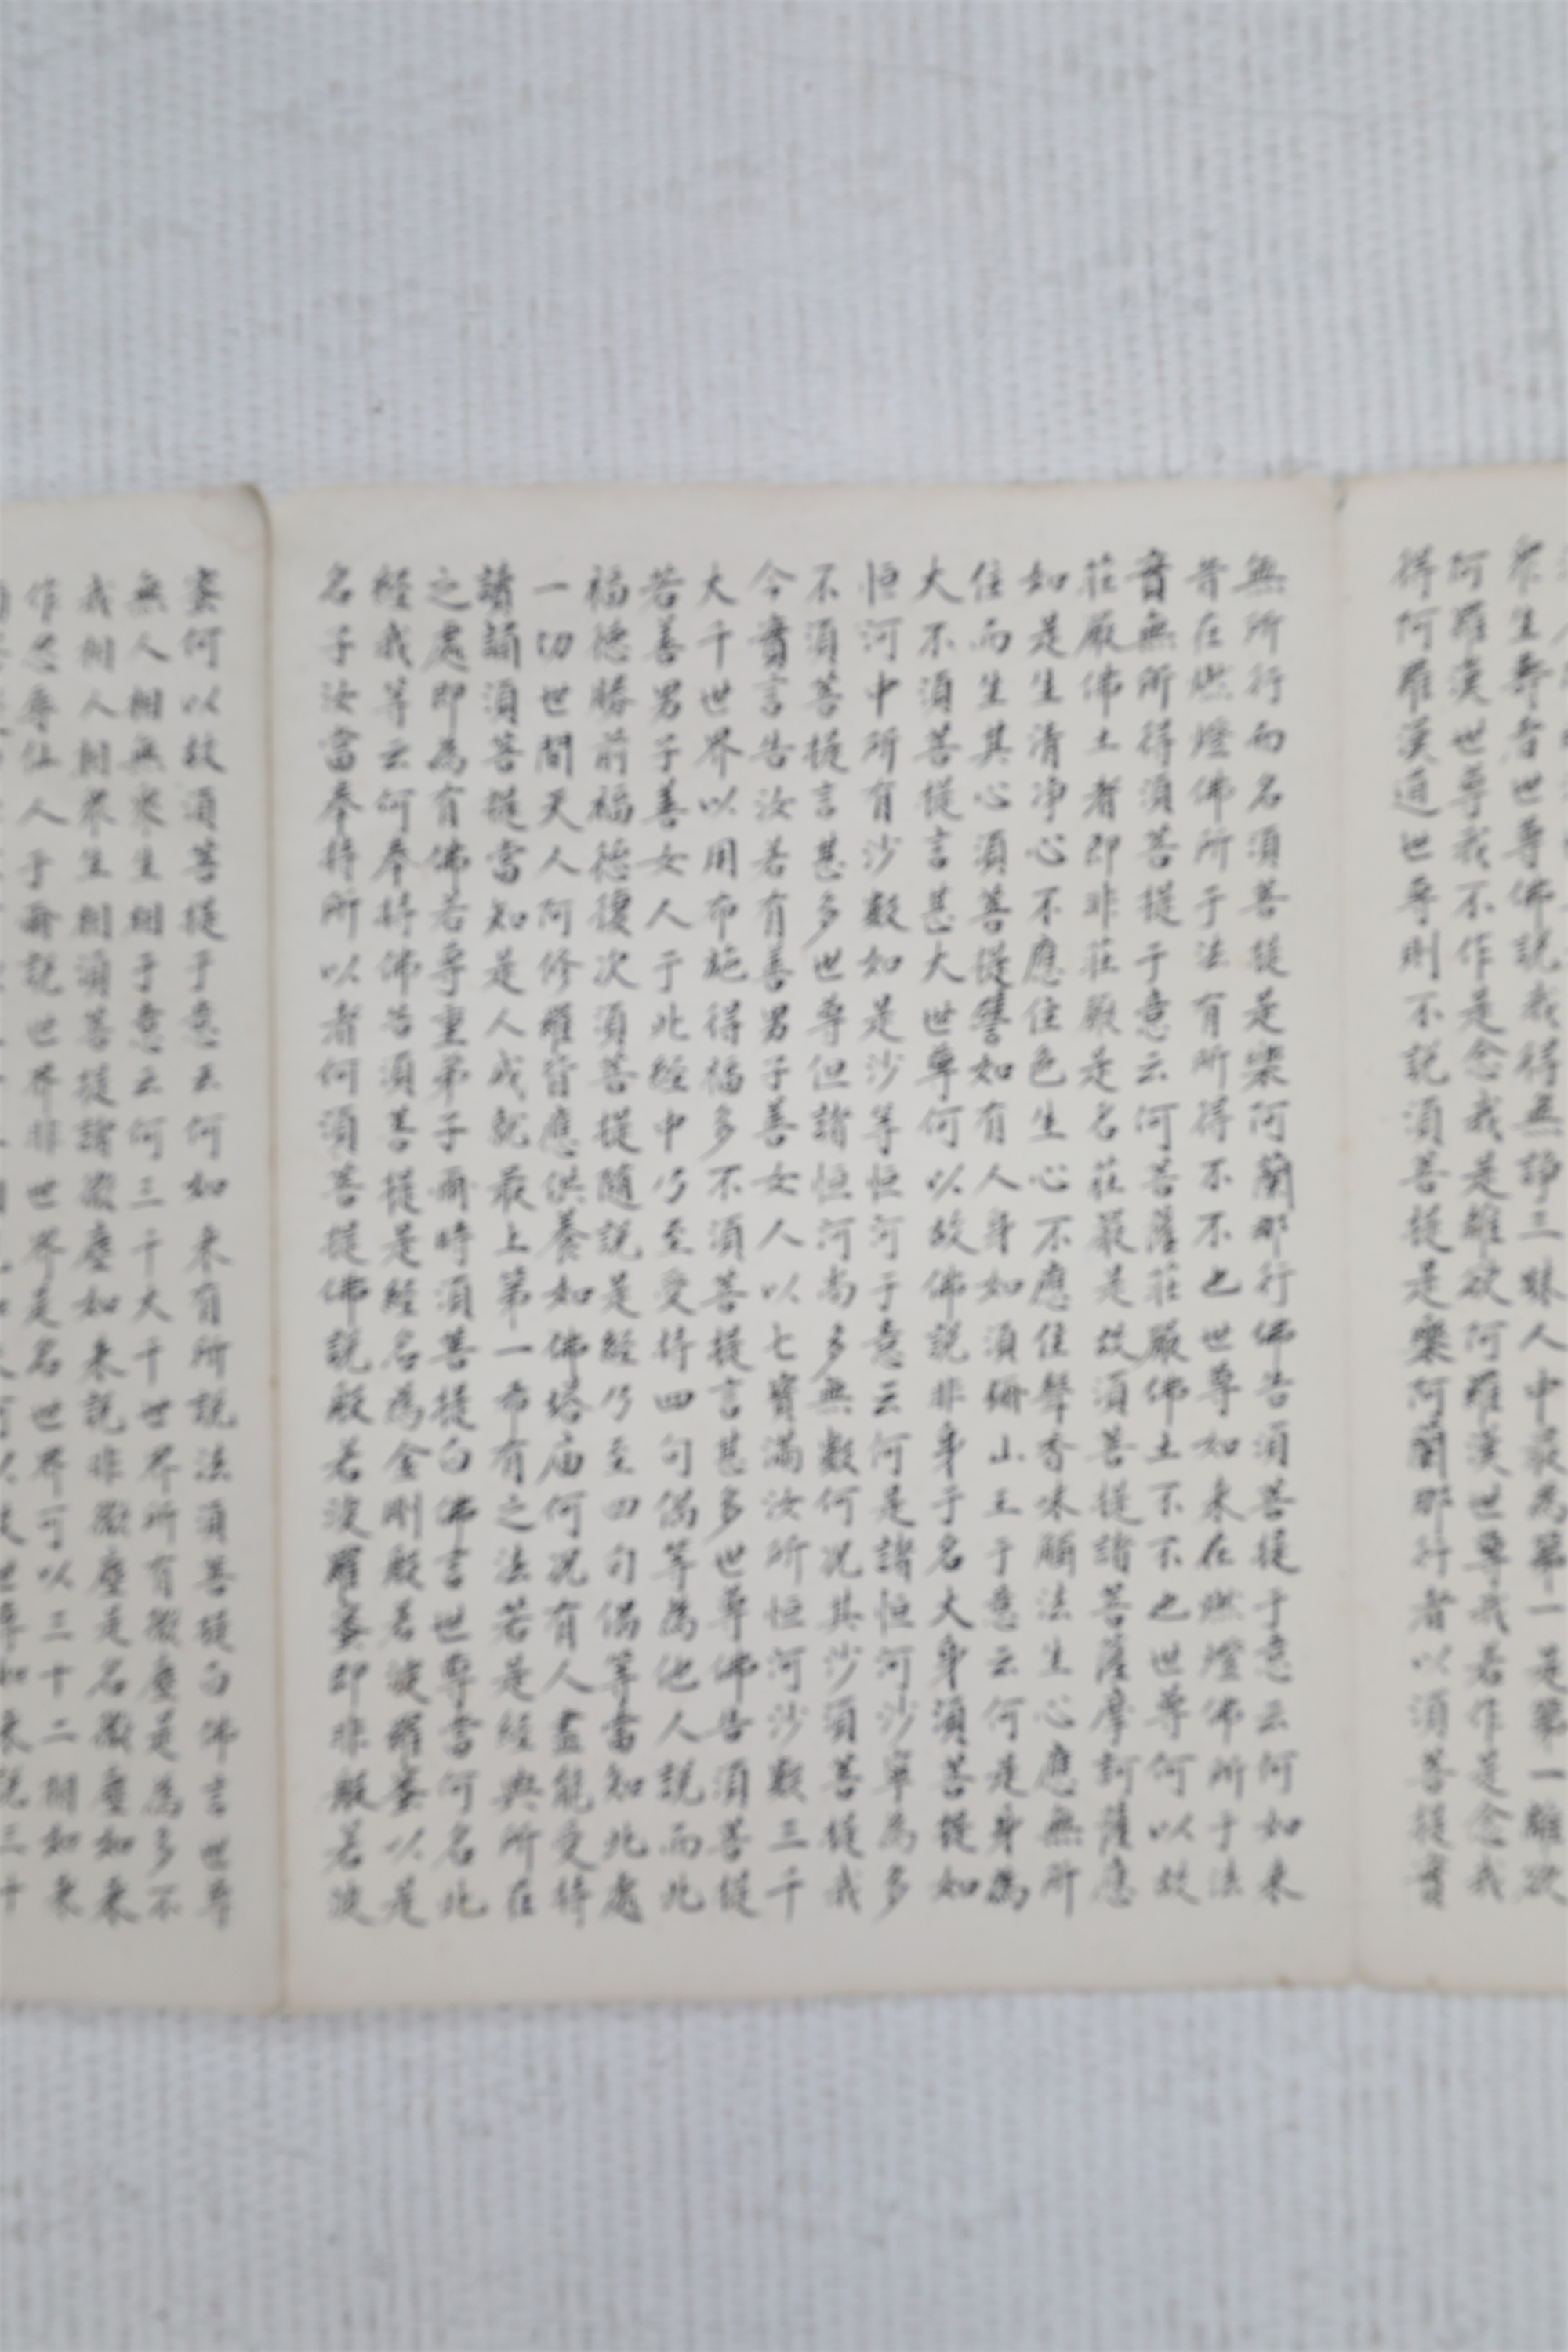 衆生壽者世尊佛說我得無諍三昧人中最為第一是第一離欲
阿羅漢世尊我不作是念我是離欲阿羅漢世尊我若作是念我
得阿羅漢道世尊則不說須菩提是樂阿蘭那行者以須菩提實
無所行而名須菩提是樂阿蘭那行佛告須菩提于意云何如来
昔在燃燈佛所于法有所得不不也世尊如来在燃燈佛所于法
實無所得須菩提于意云何菩薩莊嚴佛土不不也世尊何以故
莊嚴佛土者即非莊嚴是名莊嚴是故須菩提諸菩薩摩訶薩應
如是生清净心不應住色生心不應住聲香味觸法生心應無所
住而生其心須菩提譬如有人身如須彌山王于意云何是身為
大不須菩提言甚大世尊何以故佛說非身于名大身須菩提如
恒河中所有沙數如是沙等恒河于意云何是諸恒河沙寧為多
不須菩提言甚多世尊但諸恒河尚多無數何况其沙須菩提我
今實言告汝若有善男子善女人以七寶滿汝所恒河沙數三千
大千世界以用布施得福多不須菩提言甚多世尊佛告須菩提
若善男子善女人于此經中乃至受持四句偈等為他人說而此
福德勝前福德復次須菩提隨說是經乃至四句偈等當知此處
一切世間天人阿修羅皆應供養如佛塔庙何况有人盡能受持
讀誦須菩提當知是人成就最上第一希有之法若是經典所在
之處即為有佛若尊重弟子爾時須菩提白佛言世尊當何名此
經我等云何奉持佛告須菩提是經名為金剛般若波羅蜜以是
名子汝當奉持所以者何須菩提佛說般若波羅蜜即非般若波
蜜何以故須菩提于意云何如来有所說法須菩提白佛言世尊
無人相無衆生相于意云何三千大千世界所有微塵是為多不
我相人相衆生相須菩提諸微塵如来說非微塵是名微塵如来
作忍辱仙人于爾說世界非世界是名世界可以三十二相如来